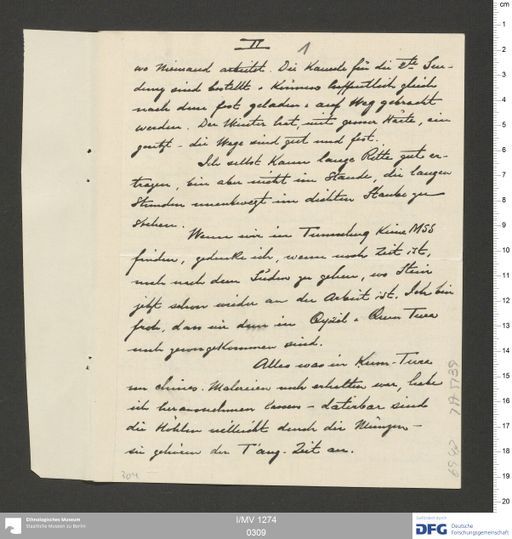 II
1
wo Niemand arbeitet. Die Kamele für die 2te Sen-
dung sind bestellt & können hoffentlich gleich
nach dem Fest geladen & auf Weg gebracht
werden. Der Winter hat, mit grosser Härte, ein
gesetzt – die Wege sind gut und fest.
Ich selbst kann lange Ritte gut er-
tragen, bin aber nicht im Stande, die langen
Stunden unentwegt im dichten Staube zu
stehen.
Wenn wir in Tumschuq keine MSS
finden, gedenke ich, wenn noch Zeit ist,
noch nach dem Süden zu gehen, wo Stein
jetzt schon wieder an der Arbeit ist. Ich bin
froh, dass wir dem in Qyzil & Qum Tura
noch zuvorgekommen sind.
Alles was in Kum-Tura
an chines. Malereien noch erhalten war, habe
ich herausnehmen lassen – datierbar sind
die Höhlen vielleicht durch die Münzen –
sie gehören der T'ang-Zeit an.
304
Ethnologisches Museum
Staatliche Museen zu Berlin
I/MV 1274
0309
Gefördert durch
DFG Deutsche
Forschungsgemeinschaft
cm
1
2
3
4
5
6
7
8
9
10
11
12
13
14
15
16
17
18
19
20